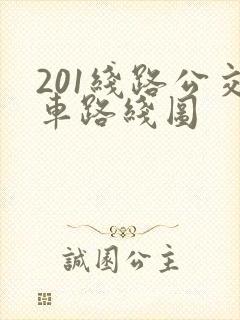 201綫路公交
車路綫圖
誠園公主